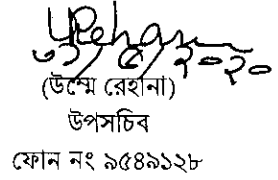 (উম্মে রেহানা)
উপসচিব
ফোন নং ৯৫৪৯১২৮